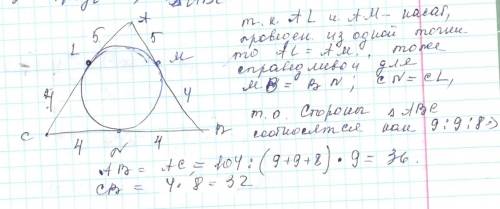 A
5 5
L M
4 4
C 4 4 B
N
т. к. AL и AM – касат,
проведен из одной точки
то AL = AM, тоже
справедливо для
MB = BN; CN = CL,
т. о. Стороны △ ABC
соотносятся как 9:9:8 ⇒
AB = AC = 104 : (9+9+8) · 9 = 36.
CB = 4 · 8 = 32